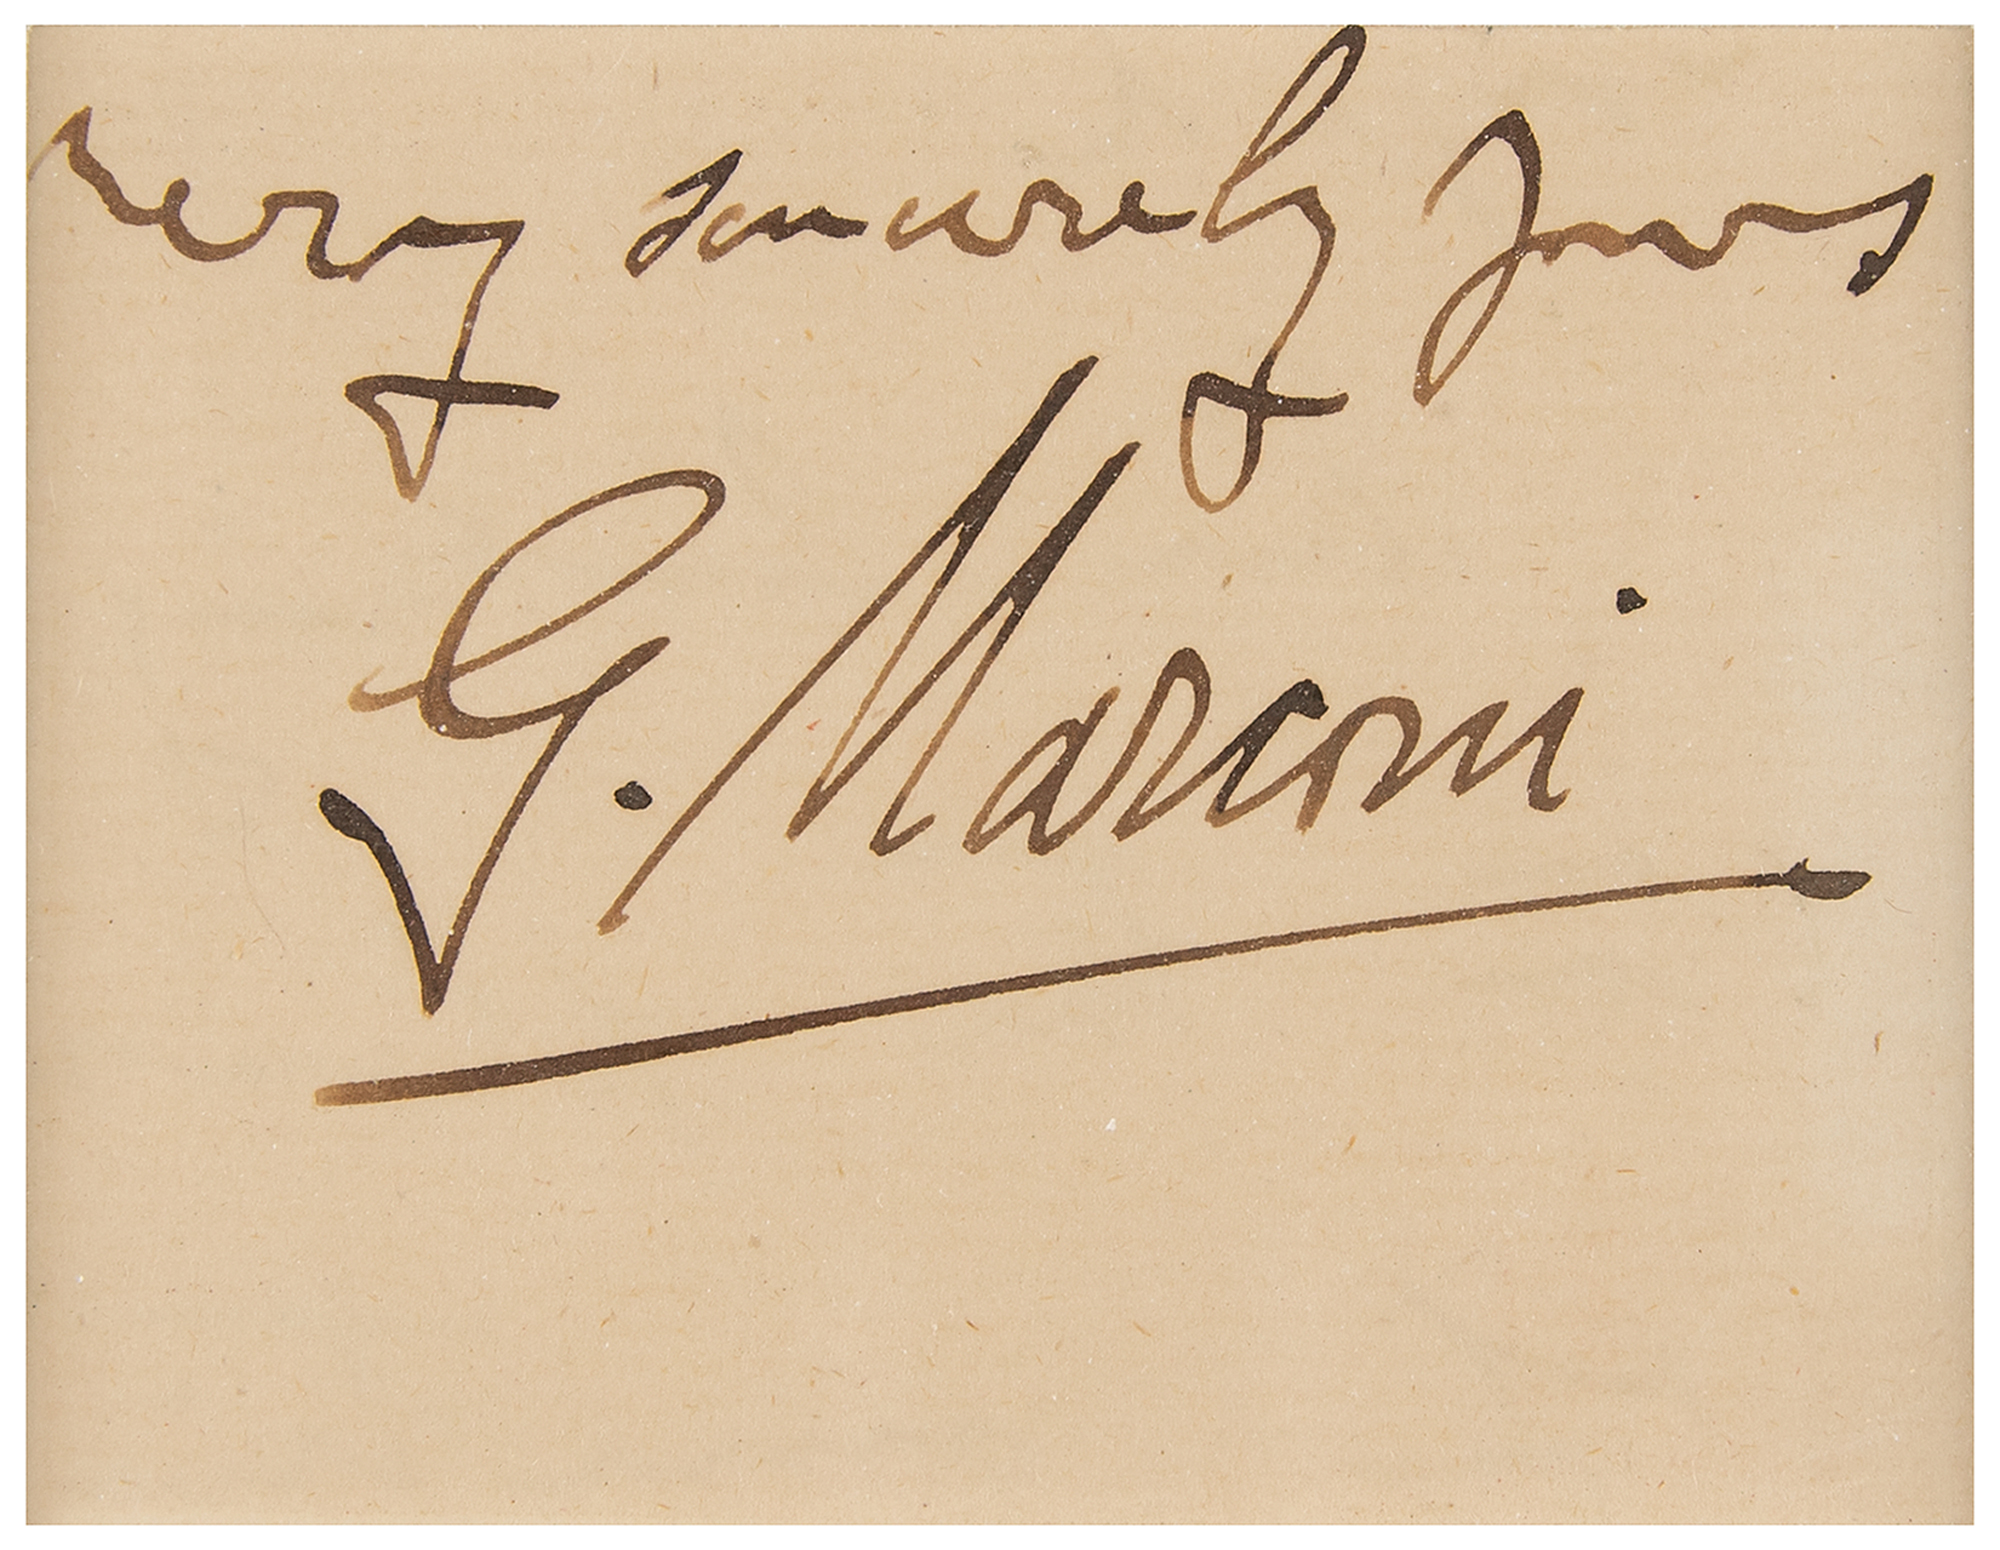 Very sincerely yours
G. Marconi